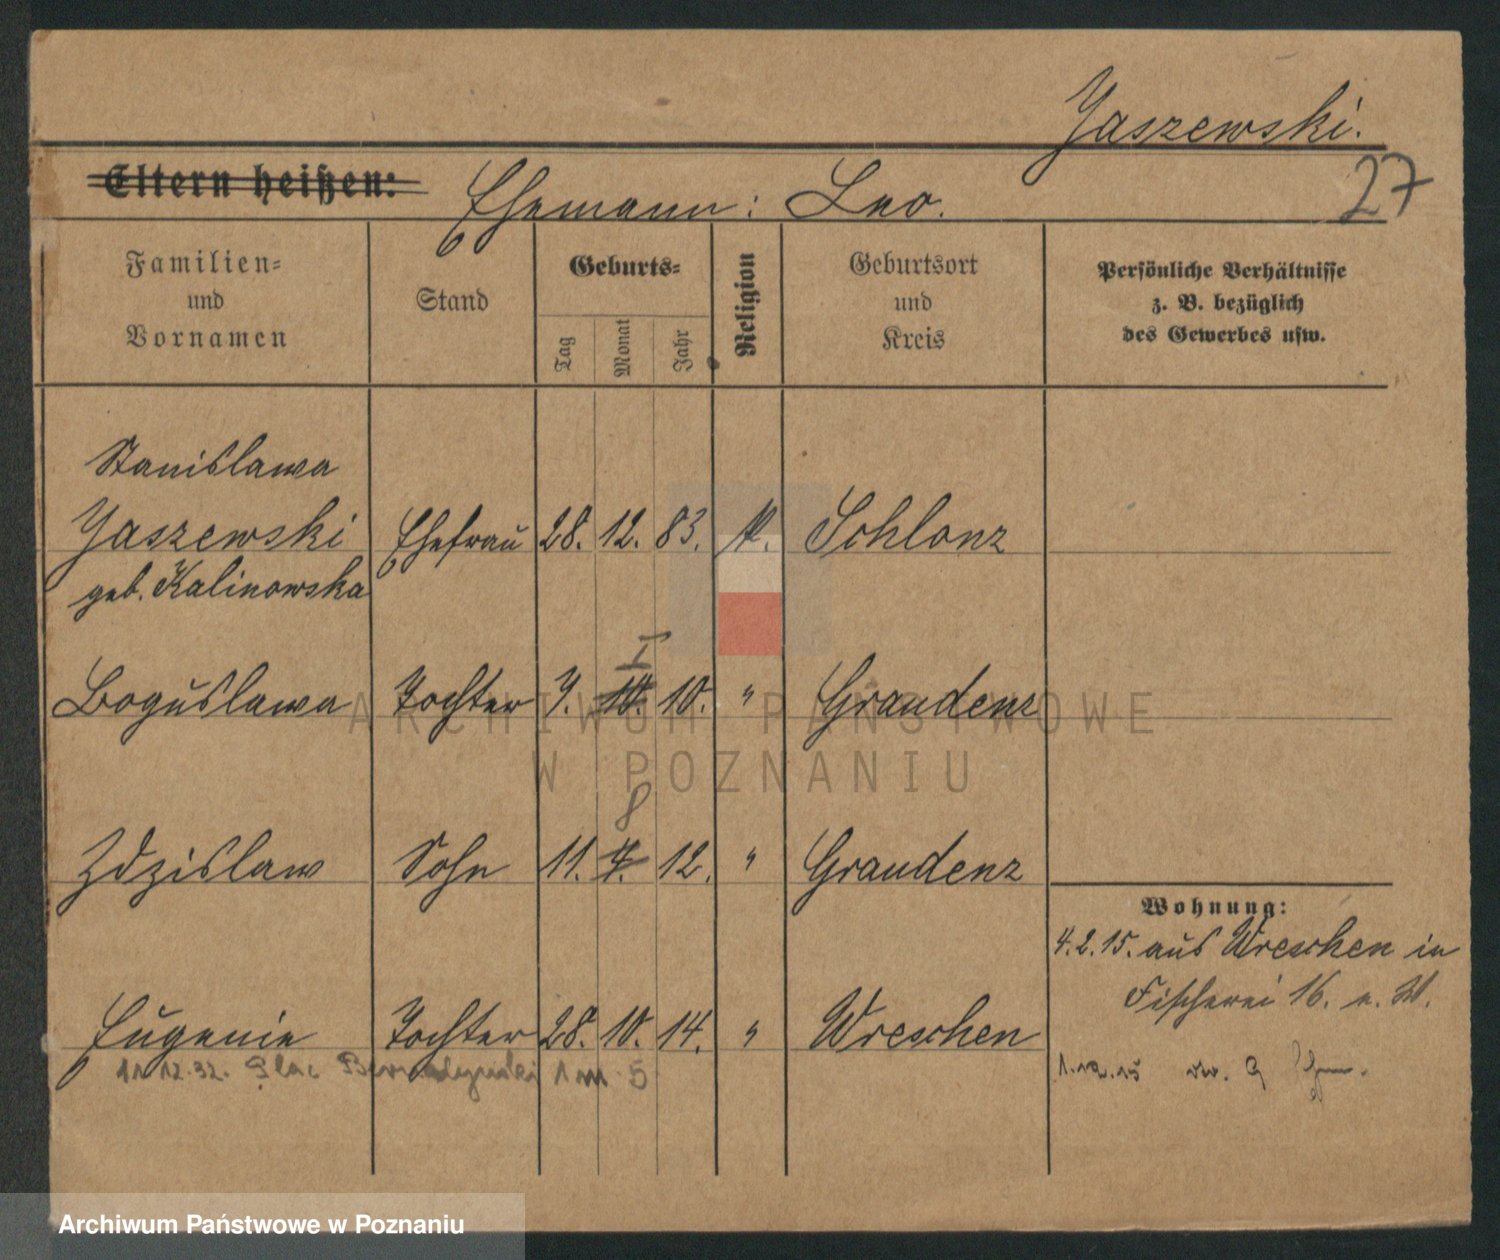 Jaszewski.
27
Eltern heißen: Ehemann: Leo.
Familien-
und
Vornamen
Stand
Geburts-
Tag
Monat
Jahr
Religion
Geburtsort
und
Kreis
Persönliche Verhältnisse
z. B. bezüglich
des Gewerbes usw.
Stanislawa
Jaszewski Ehefrau 28. 12. 83. k. Schlonz
geb. Kalinowska
I
Boguslawa Tochter 7. 10. 10. " Graudenz
8
Zdzislaw Sohn 11. 4. 12. " Graudenz
Wohnung:
4.2.15. aus Wreschen in
Fischerei 16.
Eugenie Tochter 28. 10. 14. " Wreschen
11.12.32. Plac 1 m 5
ARCHIWUM PAŃSTWOWE
W POZNANIU
Archiwum Państwowe w Poznaniu